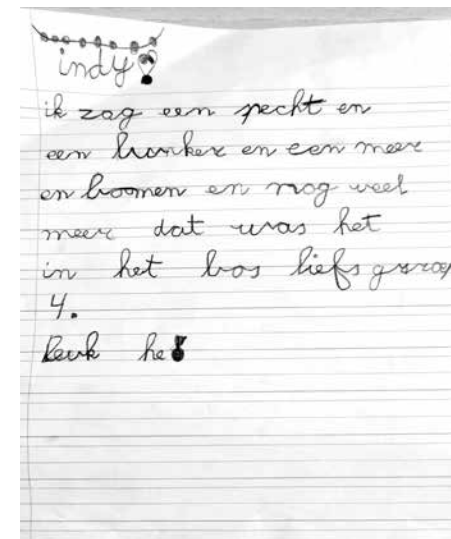 indy
ik zag een specht en
een bunker en een meer
en boomen en nog veel
meer dat was het
in het bos liefs groep
4.
Leuk he!